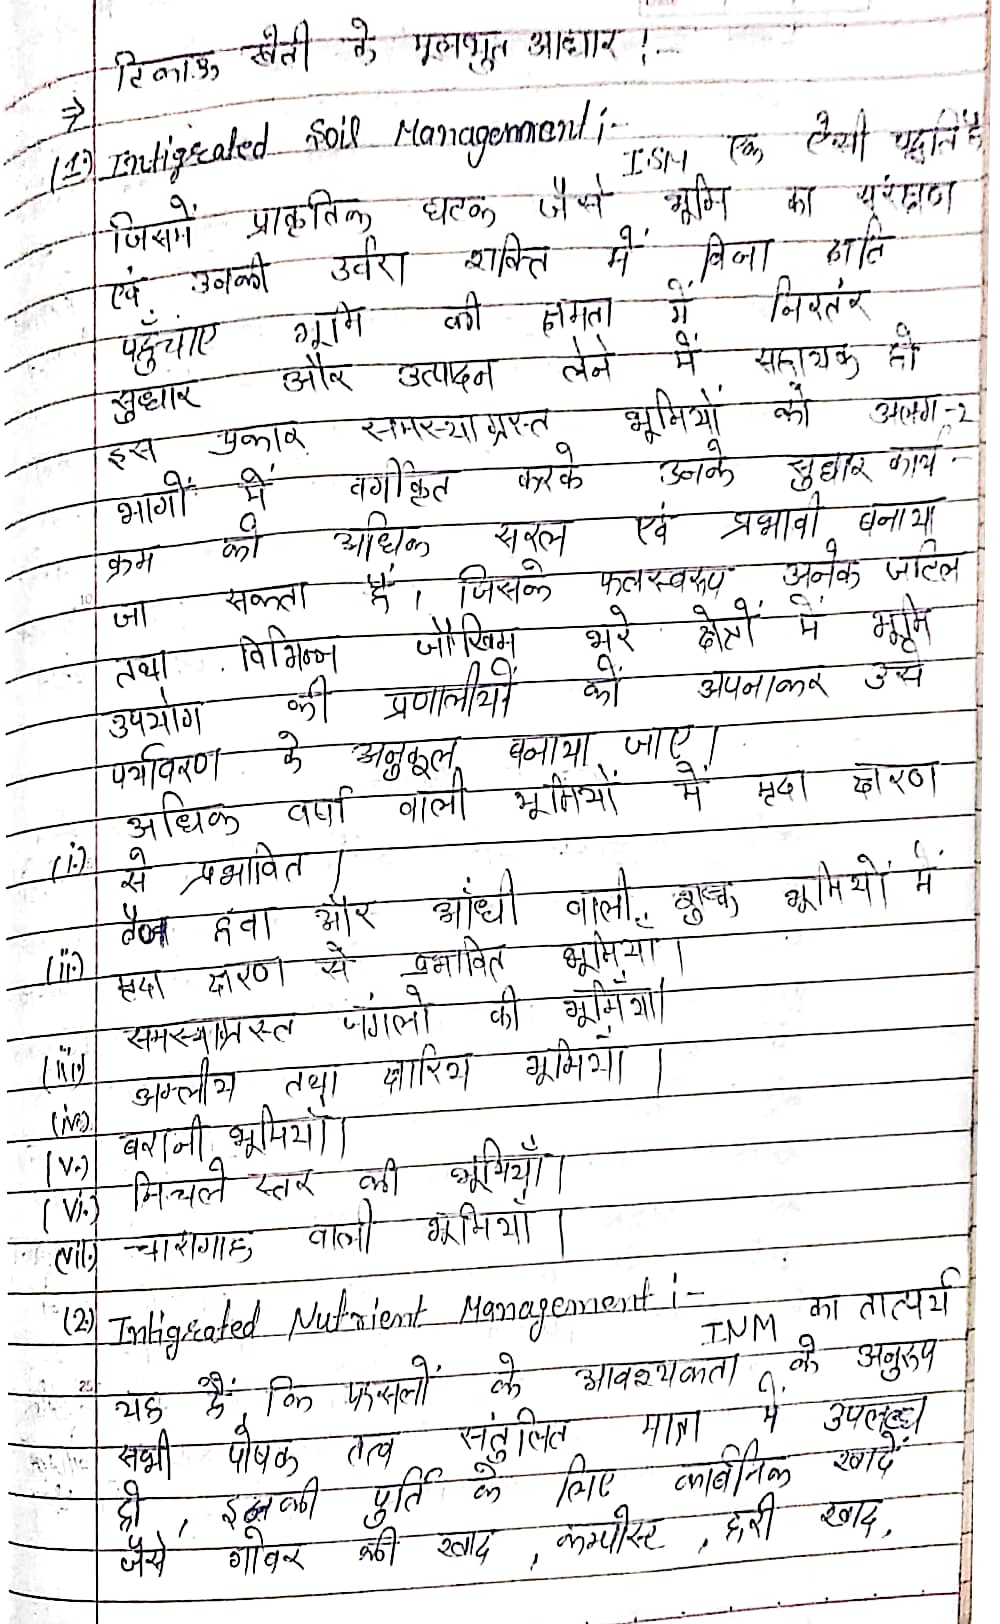 टिकाऊ खेती के मूलभूत आधार !-
⇒
(1.) Intigrated Soil Management :-
ISM एक ऐसी पद्धति है
जिसमें प्राकृतिक घटक जैसे भूमि का संरक्षण
एवं उनकी उर्वरा शक्ति में बिना क्षति
पहुँचाए भूमि की क्षमता में निरतंर
सुधार और उत्पादन लेने में सहायक हो
इस प्रकार समस्याग्रस्त भूमियों को अलग-2
भागों में वर्गीकृत करके उनके सुधार कार्य-
क्रम को अधिक सरल एवं प्रभावी बनाया
जा सकता हैं, जिसके फलस्वरूप अनेक जटिल
तथा विभिन्न जोखिम भरे क्षेत्रों में भूमि
उपयोग की प्रणालीयों को अपनाकर उसे
पर्यावरण के अनुकूल बनाया जाए।
(i.) अधिक वर्षा वाली भूमियों में मृदा क्षरण
से प्रभावित।
(ii.) तेज हवा और आंधी वाली शुष्क भूमियों में
मृदा क्षरण से प्रभावित भूमियाँ।
(iii) समस्याग्रस्त जंगलो की भूमियाँ।
(iv). अम्लीय तथा क्षारिय भूमियाँ।
(v.) बरानी भूमियाँ।
(vi.) निचले स्तर की भूमियाँ।
(vii.) चारागाह वाली भूमियाँ।
(2.) Intigrated Nutrient Management :-
INM का तात्पर्य
यह हैं, कि फसलों के आवश्यकता के अनुरूप
सभी पोषक तत्व संतुलित मात्रा में उपलब्ध
हो, इनकी पुर्ति के लिए कार्बनिक खादें
जैसे गोबर की खाद, कम्पोस्ट, हरी खाद,